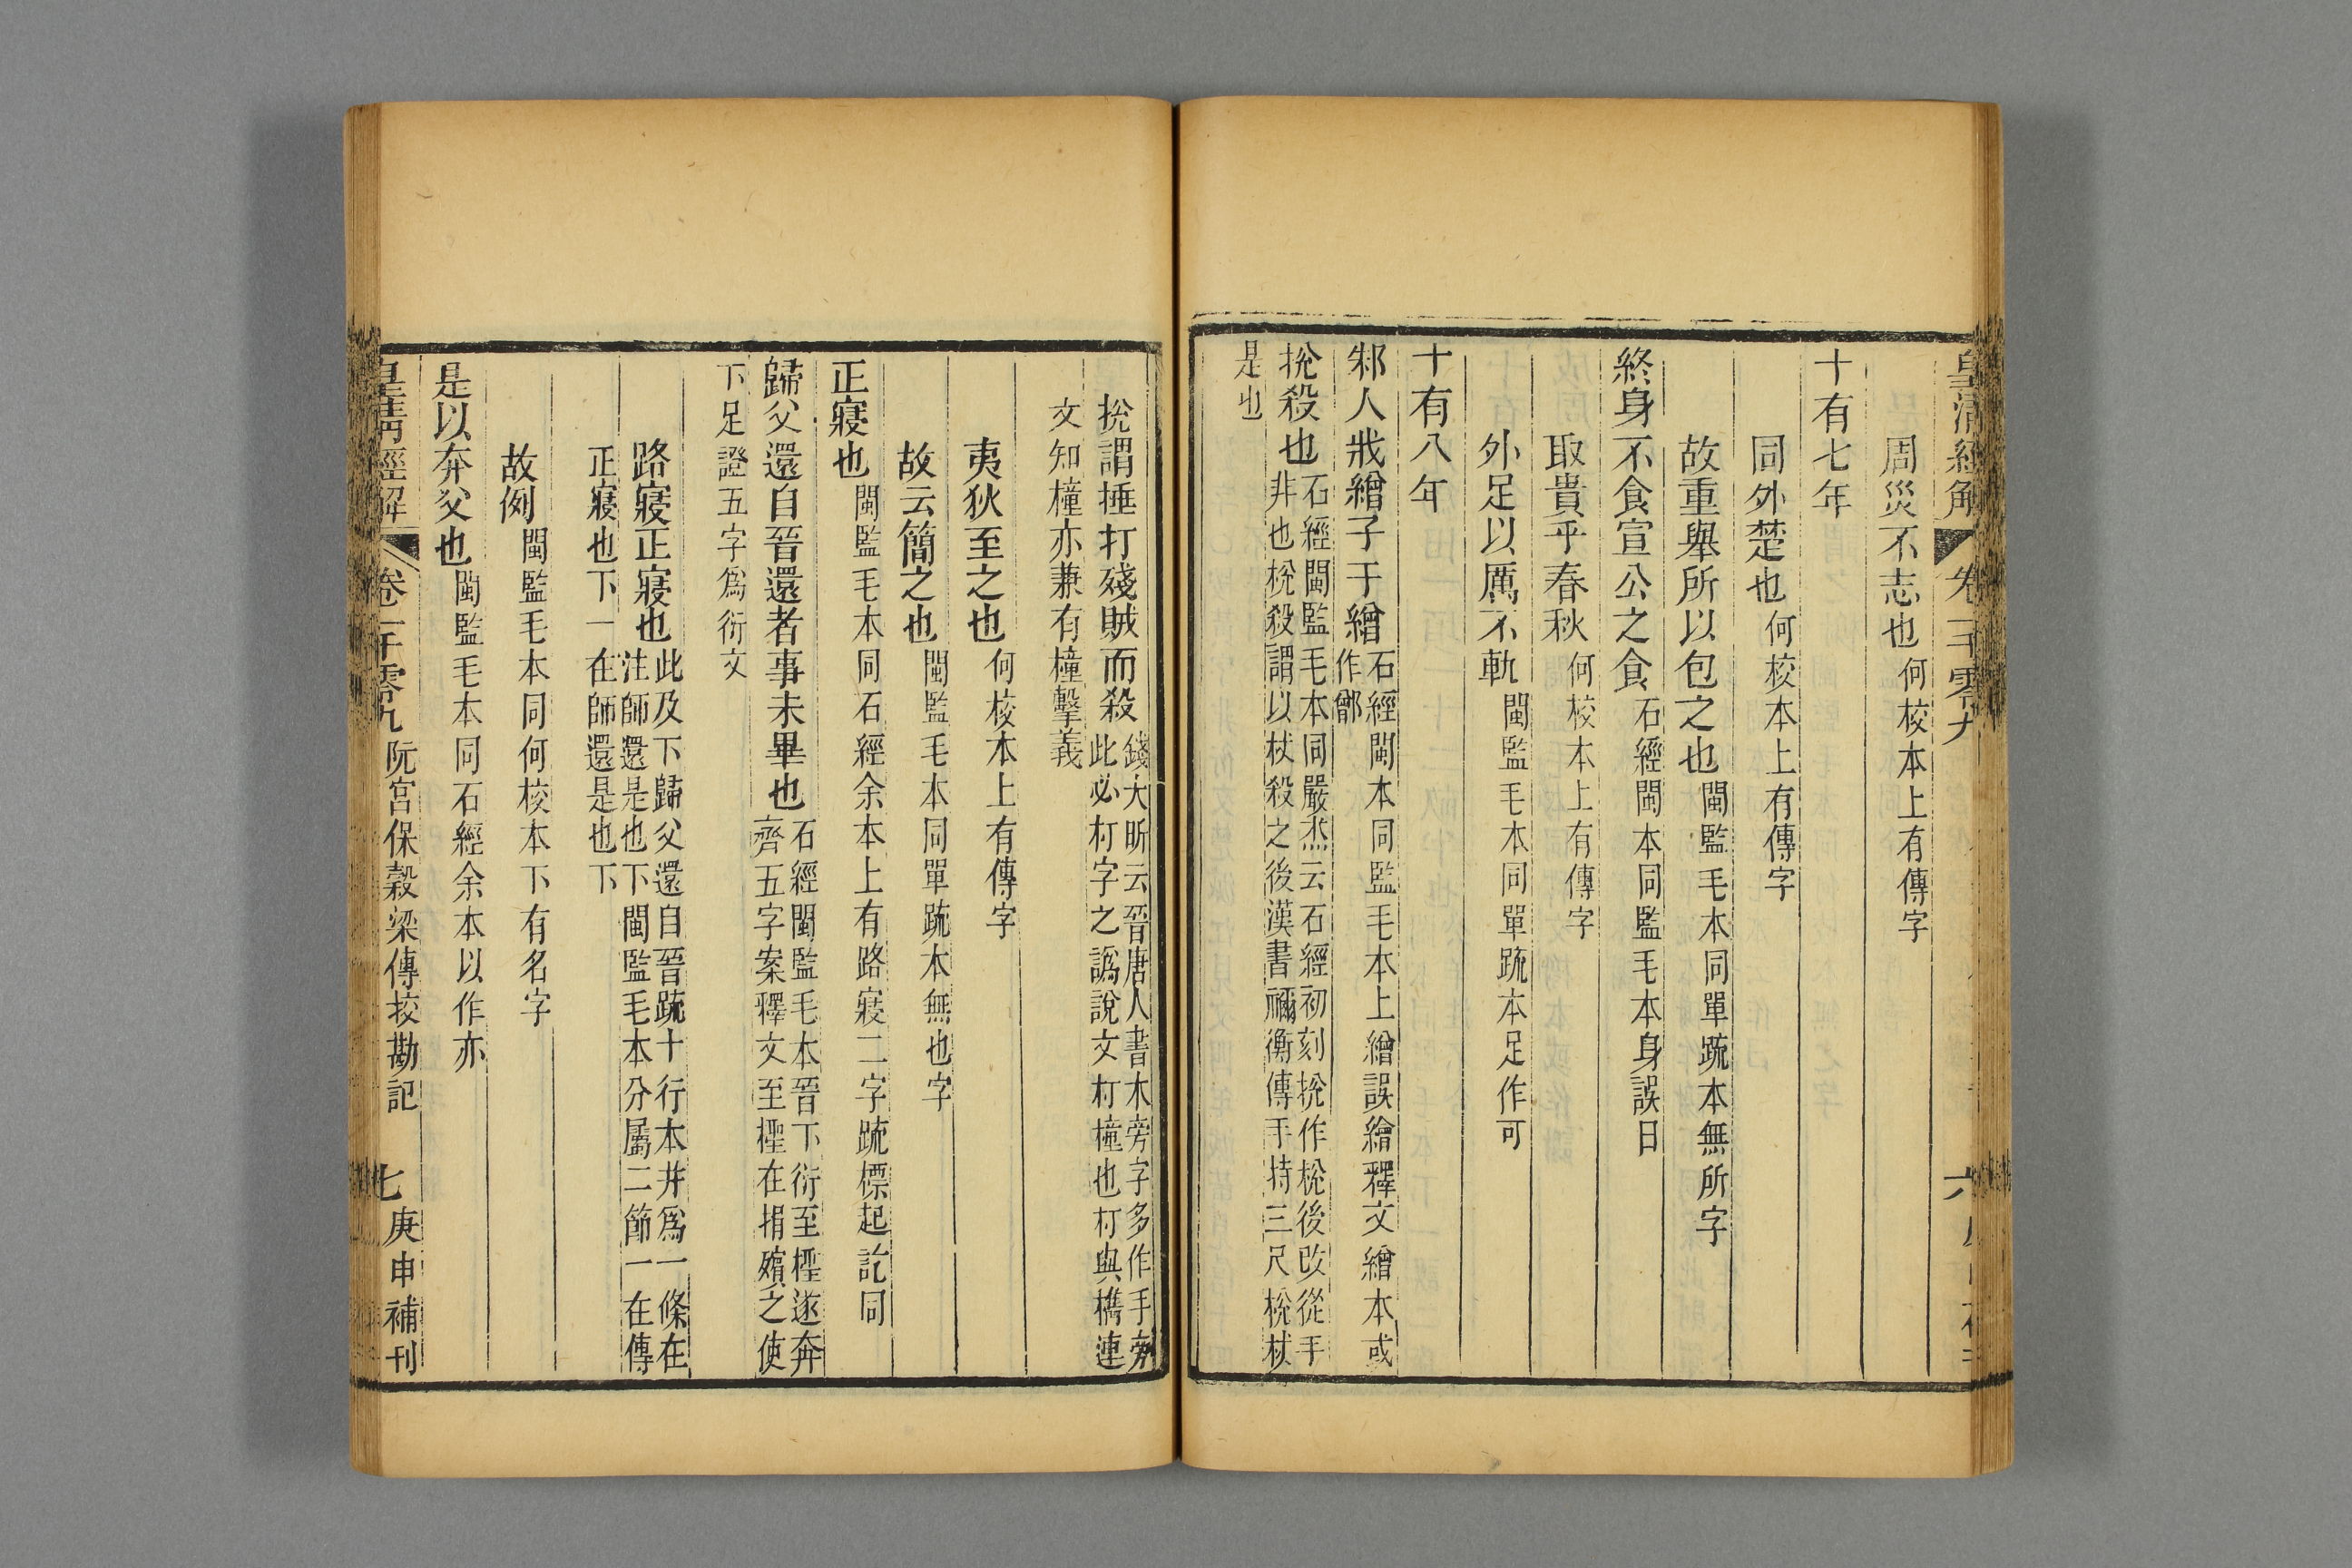 皇清經解 卷一千零九 六
周災不志也何校本上有傳字
十有七年
同外楚也何校本上有傳字
故重舉所以包之也閩監毛本同單疏本無所字
終身不食宣公之食石經閩本同監毛本身誤日
取貴乎春秋何校本上有傳字
外足以厲不軌閩監毛本同單疏本足作可
十有八年
邾人戕繒子于繒石經閩本同監毛本上繒誤繪釋文繒本或
作鄫
挩殺也石經閩監毛本同嚴杰云石經初刻挩作梲後改從手
非也梲殺謂以杖殺之後漢書禰衡傳手持三尺梲杖
是也
挩謂捶打殘賊而殺錢大昕云晉唐人書木旁字多作手旁
此必朾字之譌說文朾橦也朾與檇連
文知橦亦兼有橦擊義
夷狄至之也何校本上有傳字
故云簡之也閩監毛本同單疏本無也字
正寢也閩監毛本同石經余本上有路寢二字疏標起訖同
歸父還自晉還者事未畢也石經閩監毛本晉下衍至檉遂奔
齊五字案釋文至檉在捐殯之使
下足證五字爲衍文
路寢正寢也此及下歸父還自晉疏十行本并爲一條在
注師還是也下閩監毛本分屬二節一在傳
正寢也下一在師還是也下
故例閩監毛本同何校本下有名字
是以奔父也閩監毛本同石經余本以作亦
皇清經解 卷一千零九 阮宮保穀梁傳挍勘記 七 庚申補刊